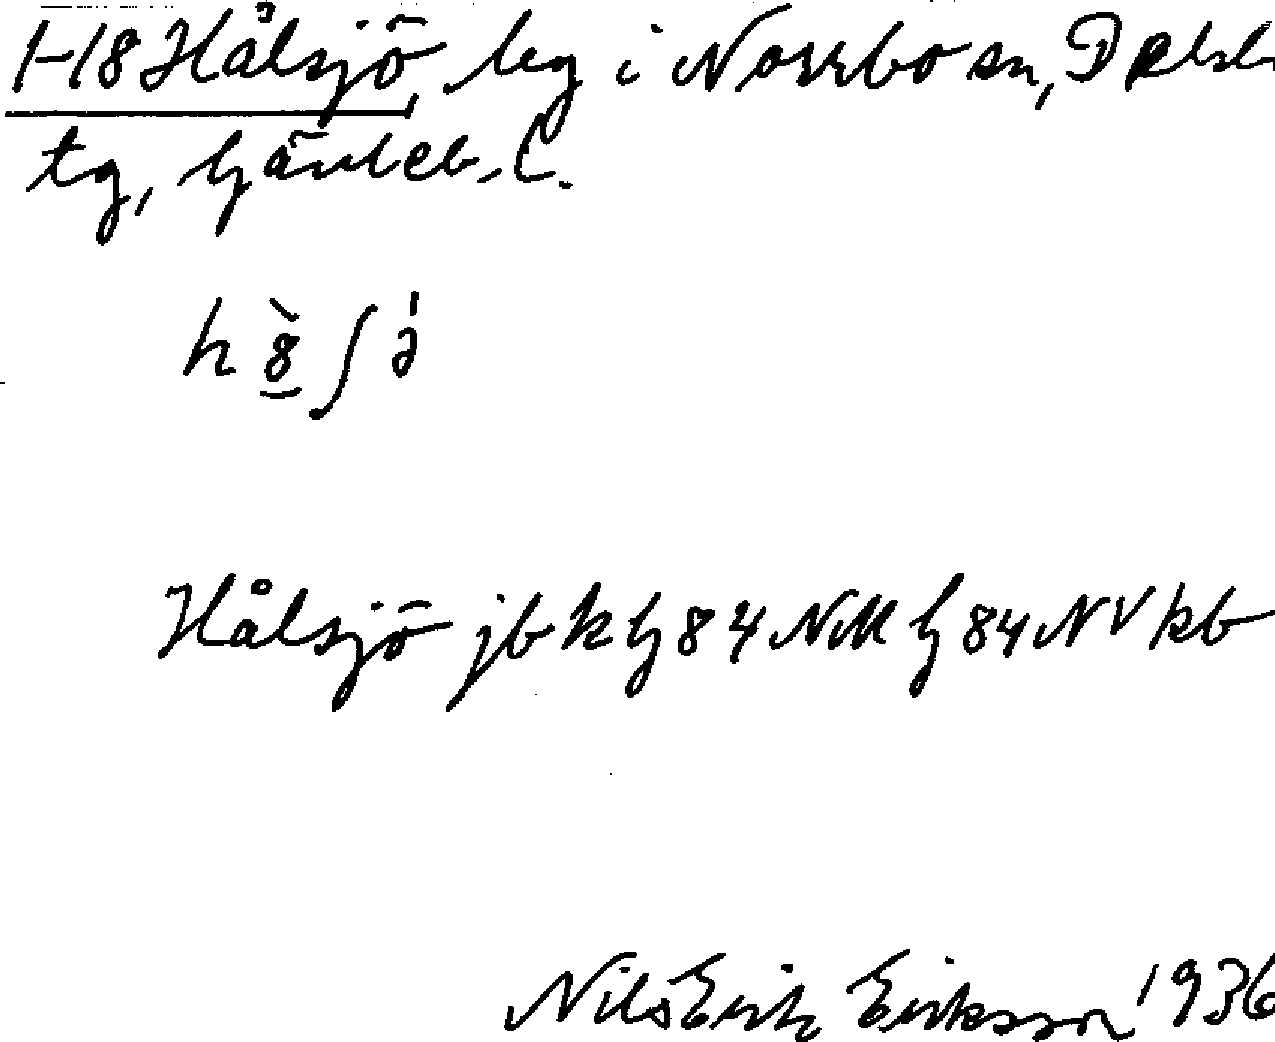 1-18 Hålsjö, leg i Norrbo sn, Delsb
tg, Gävleb. l.
h ὃ ʃ ə́
Hålsjö jb k G84NM G84NV kb
Nils Erik Eriksson 1936